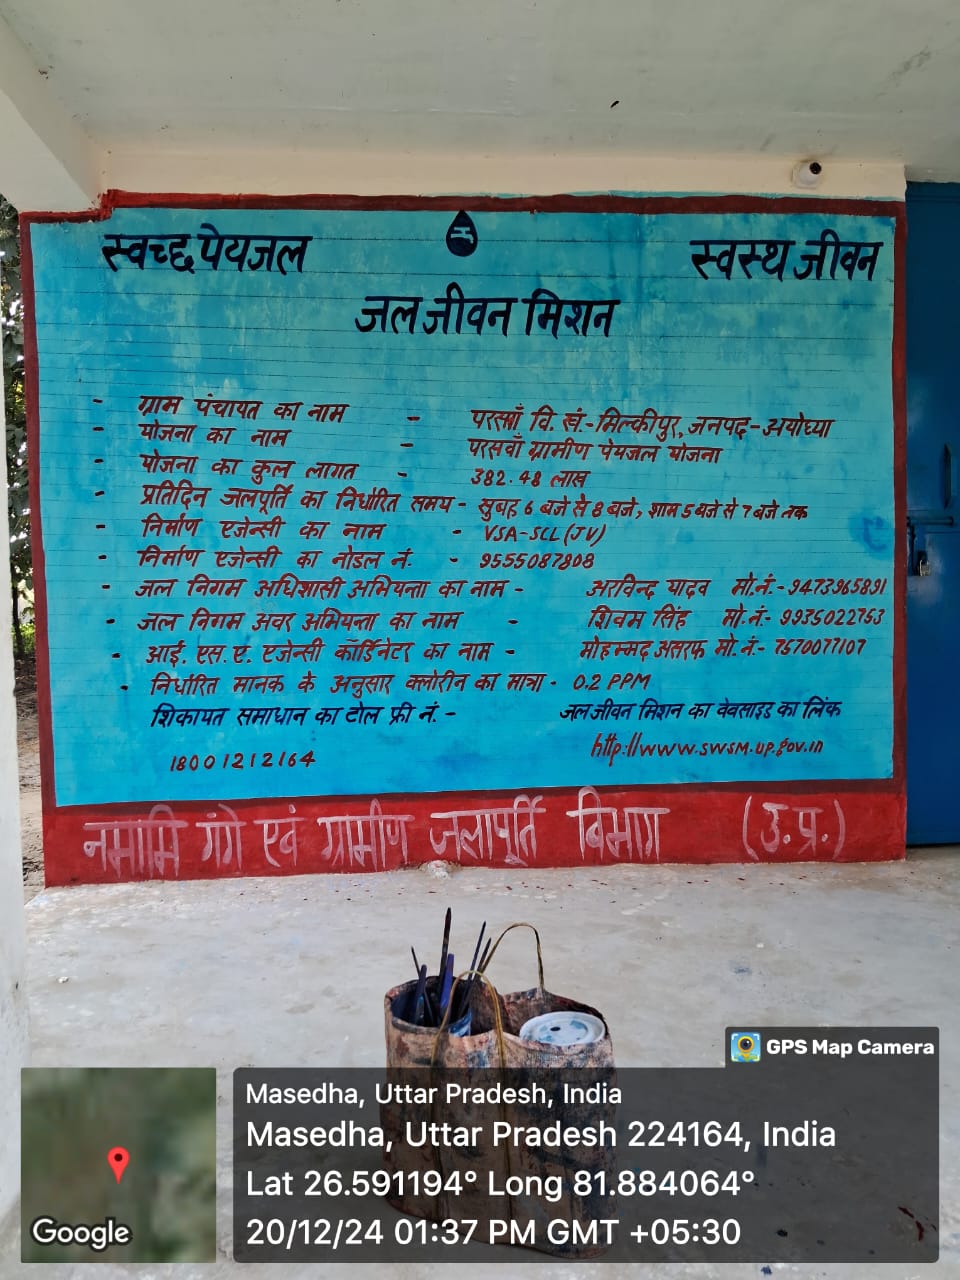 स्वच्छ पेयजल स्वस्थ जीवन
जल जीवन मिशन
- ग्राम पंचायत का नाम - परसवाँ वि. खं.-मिल्कीपुर, जनपद-अयोध्या
- योजना का नाम - परसवाँ ग्रामीण पेयजल योजना
- योजना का कुल लागत - 382.48 लाख
- प्रतिदिन जलपूर्ति का निर्धारित समय - सुबह 6 बजे से 8 बजे, शाम 5 बजे से 7 बजे तक
- निर्माण एजेन्सी का नाम - VSA-SCL (JV)
- निर्माण एजेन्सी का नोडल नं. - 9555087808
- जल निगम अधिशासी अभियन्ता का नाम - अरविन्द यादव मो.नं.-9473965891
- जल निगम अवर अभियन्ता का नाम - शिवम सिंह मो.नं.-9935022753
- आई. एस. ए. एजेन्सी कॉर्डिनेटर का नाम - मोहम्मद असरफ मो.नं.-7570077107
- निर्धारित मानक के अनुसार क्लोरीन का मात्रा - 0.2 PPM
शिकायत समाधान का टोल फ्री नं.- जल जीवन मिशन का वेवसाइड का लिंक
18001212164 http://www.swsm.up.gov.in
नमामि गंगे एवं ग्रामीण जलापूर्ति विभाग (उ.प्र.)
GPS Map Camera
Masedha, Uttar Pradesh, India
Masedha, Uttar Pradesh 224164, India
Lat 26.591194° Long 81.884064°
20/12/24 01:37 PM GMT +05:30
Google